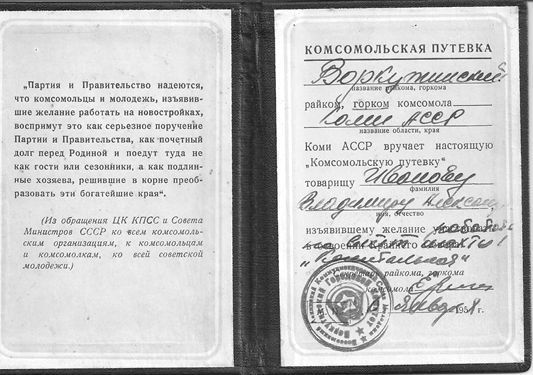 „Партия и Правительство надеются,
что комсомольцы и молодежь, изъявив-
шие желание работать на новостройках,
воспримут это как серьезное поручение
Партии и Правительства, как почетный
долг перед Родиной и поедут туда не
как гости или сезонники, а как подлин-
ные хозяева, решившие в корне преоб-
разовать эти богатейшие края“.
(Из обращения ЦК КПСС и Совета
Министров СССР ко всем комсомоль-
ским организациям, к комсомольцам
и комсомолкам, ко всей советской
молодежи.)
КОМСОМОЛЬСКАЯ ПУТЕВКА
Воркутинский
название райкома, горкома
райком, горком комсомола
Коми АССР
название области, края
Коми АССР вручает настоящую
„Комсомольскую путевку“
товарищу Иванову
фамилия
Владимиру
имя, отчество
изъявившему желание
шахты
„Капитальная“
райкома, горкома
комсомола
января 195